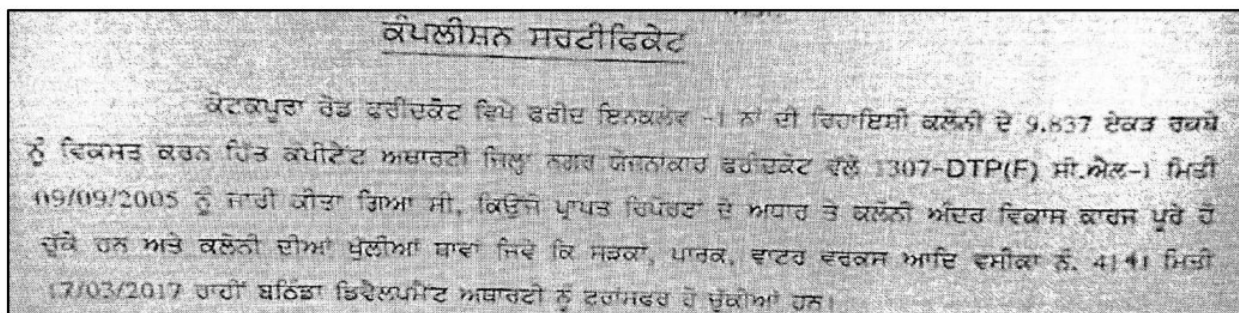 ਕੰਪਲੀਸ਼ਨ ਸਰਟੀਫਿਕੇਟ
ਕੋਟਕਪੂਰਾ ਰੋਡ ਫਰੀਦਕੋਟ ਵਿਖੇ ਫਰੀਦ ਇਨਕਲੇਵ -1 ਨਾਂ ਦੀ ਰਿਹਾਇਸ਼ੀ ਕਲੋਨੀ ਦੇ 9.837 ਏਕੜ ਰਕਬੇ
ਨੂੰ ਵਿਕਸਤ ਕਰਨ ਹਿੱਤ ਕੰਪੀਟੈਂਟ ਅਥਾਰਟੀ ਜਿਲ੍ਹਾ ਨਗਰ ਯੋਜਨਾਕਾਰ ਫਰੀਦਕੋਟ ਵੱਲੋਂ 1307-DTP(F) ਸੀ.ਐਲ-1 ਮਿਤੀ
09/09/2005 ਨੂੰ ਜਾਰੀ ਕੀਤਾ ਗਿਆ ਸੀ, ਕਿਉਂਜੋ ਪ੍ਰਾਪਤ ਰਿਪੋਰਟਾਂ ਦੇ ਅਧਾਰ ਤੇ ਕਲੋਨੀ ਅੰਦਰ ਵਿਕਾਸ ਕਾਰਜ ਪੂਰੇ ਹੋ
ਚੁੱਕੇ ਹਨ ਅਤੇ ਕਲੋਨੀ ਦੀਆਂ ਖੁੱਲੀਆਂ ਥਾਵਾਂ ਜਿਵੇਂ ਕਿ ਸੜਕਾਂ, ਪਾਰਕ, ਵਾਟਰ ਵਰਕਸ ਆਦਿ ਵਸੀਕਾ ਨੰ. 4141 ਮਿਤੀ
17/03/2017 ਰਾਹੀਂ ਬਠਿੰਡਾ ਡਿਵੈਲਪਮੈਂਟ ਅਥਾਰਟੀ ਨੂੰ ਟਰਾਂਸਫਰ ਹੋ ਚੁੱਕੀਆਂ ਹਨ।